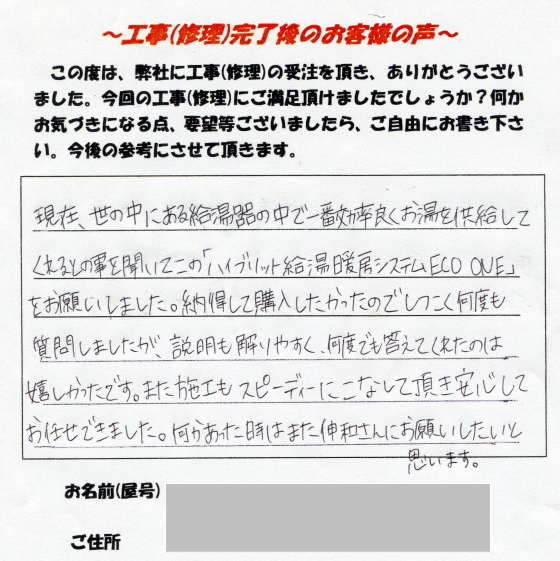 ～工事(修理)完了後のお客様の声～
この度は、弊社に工事(修理)の受注を頂き、ありがとうござい
ました。今回の工事(修理)にご満足頂けましたでしょうか?何か
お気づきになる点、要望等ございましたら、ご自由にお書き下さ
い。今後の参考にさせて頂きます。
現在、世の中にある給湯器の中で一番効率良くお湯を供給して
くれるとの事を聞いてこの「ハイブリット給湯暖房システムECO ONE」
をお願いしました。納得して購入したかったのでしつこく何度も
質問しましたが、説明も解りやすく、何度でも答えてくれたのは
嬉しかったです。また施工もスピーディーにこなして頂き安心して
お任せできました。何かあった時はまた伸和さんにお願いしたいと
思います。
お名前(屋号)
ご住所